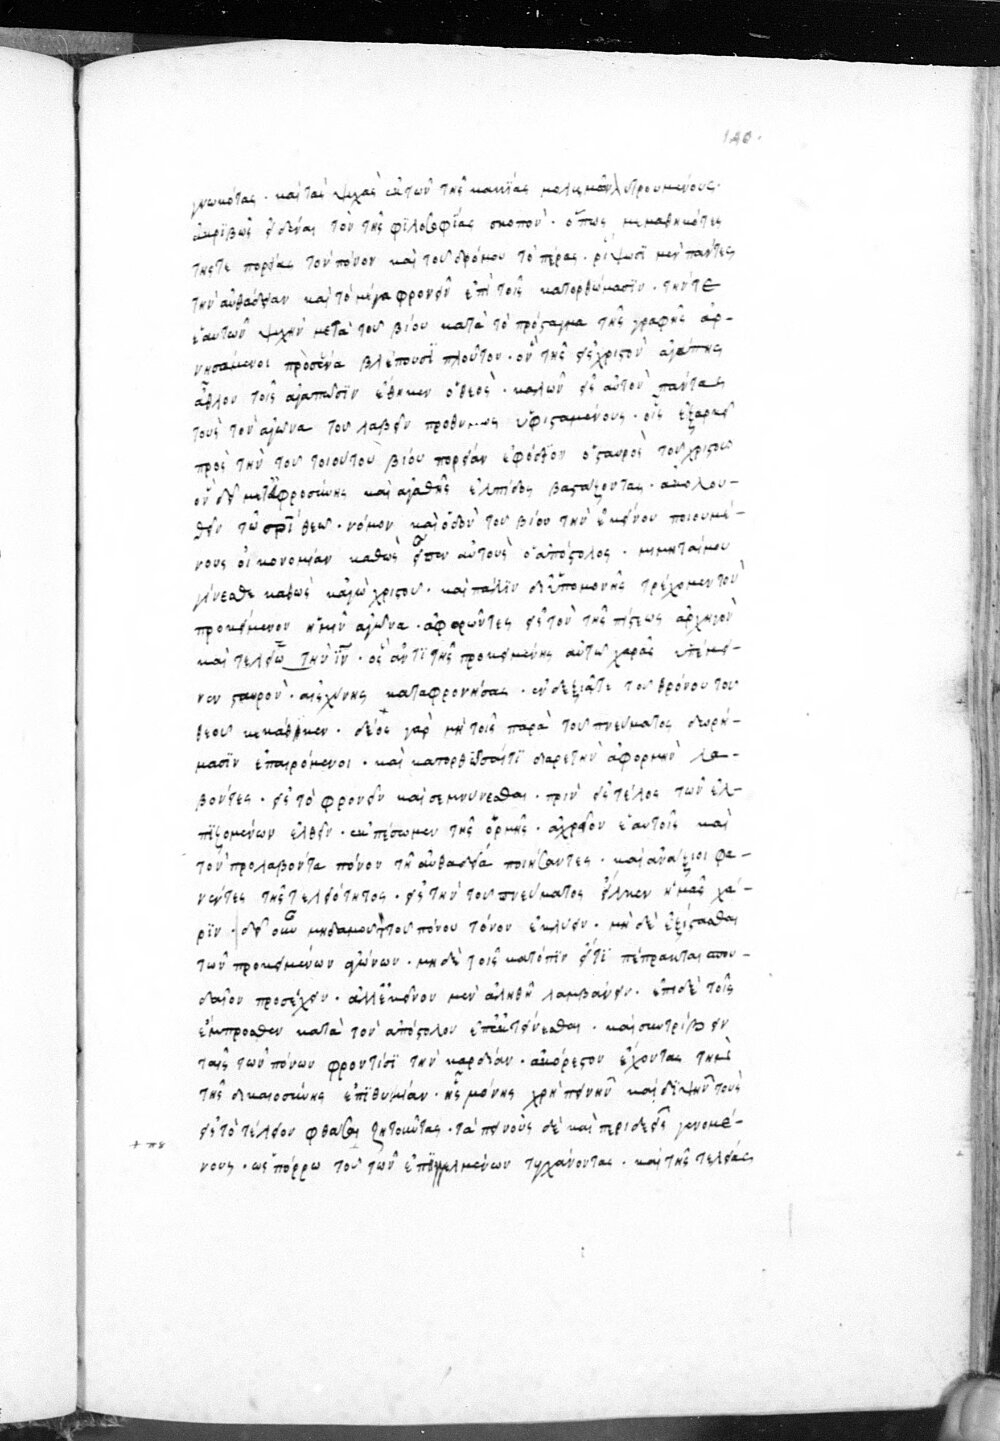 140.
γνωκότας · καὶ τὰς ψυχὰς ἐκ τῶν τῆς κακίας μολυσμῶν λυτρουμένους ·
ἀκριβῶς εἰδέναι τὸν τῆς φιλοσοφίας σκοπὸν · ὅπως μεμαθηκότες
τῆς τε πορείας τὸν πόνον καὶ τοῦ δρόμου τὸ πέρας · ρίψωσι μὲν πάντες
τὴν αὐθάδειαν καὶ τὸ μέγα φρονεῖν ἐπὶ τοῖς κατορθώμασιν · τήν τε
ἑαυτῶν ψυχὴν μετὰ τοῦ βίου κατὰ τὸ πρόσταγμα τῆς γραφῆς ἀρ-
νησάμενοι πρὸς ἕνα βλέπουσι πλοῦτον · ὃν τῆς εἰς χριστὸν ἀγάπης
ἆθλον τοῖς ἀγαπῶσιν ἔθηκεν ὁ θεὸς · καλῶν εἰς αὐτὸν πάντας
τοὺς τὸν ἀγῶνα τοῦ λαβεῖν προθύμως ὑφισταμένους · οἷς ἐξαρκεῖ
πρὸς τὴν τοῦ τοιούτου βίου πορείαν ἐφόδιον ὁ σταυρὸς τοῦ χριστοῦ
ὃν δεῖ μετ' εὐφροσύνης καὶ ἀγαθῆς ἐλπίδος βαστάζοντας · ἀκολου-
θεῖν τῷ σωτῆρι θεῷ · νόμον καὶ ὁδὸν τοῦ βίου τὴν ἐκείνου ποιουμέ-
νους οἰκονομίαν καθὼς εἶπεν αὐτοὺς ὁ ἀπόστολος · μιμηταί μου
γίνεσθε καθὼς κἀγὼ χριστοῦ · καὶ πάλιν δι' ὑπομονῆς τρέχομεν τὸν
προκείμενον ἡμῖν ἀγῶνα · ἀφορῶντες εἰς τὸν τῆς πίστεως ἀρχηγὸν
καὶ τελειωτὴν ἰν · ὃς ἀντὶ τῆς προκειμένης αὐτῷ χαρᾶς ὑπέμει-
νεν σταυρὸν · αἰσχύνης καταφρονήσας · ἐν δεξιᾷ τε τοῦ θρόνου τοῦ
θεοῦ κεκάθικεν · δέος γὰρ μὴ τοῖς παρὰ τοῦ πνεύματος δωρή-
μασιν ἐπαιρόμενοι · καὶ κατόρθωσαί τι δι' ἀρετὴν ἀφορμὴν λα-
βόντες · εἰς τὸ φρονεῖν καὶ σεμνύνεσθαι · πρὶν εἰς τέλος τῶν ἐλ-
πιζομένων ἐλθεῖν · ἐκπέσωμεν τῆς ὁρμῆς · ἀχρεῖον ἑαυτοῖς καὶ
τὸν προλαβόντα πόνον τῇ αὐθαδείᾳ ποιήσαντες · καὶ ἀνάξιοι φα-
νέντες τῆς τελειότητος · εἰς ἣν τοῦ πνεύματος εἷλκεν ἡμᾶς χά-
ριν · δεῖ οὖν μηδαμοῦ τὸν τοῦ πόνου τόνον ἐκλύειν · μηδὲ ἐξίστασθαι
τῶν προκειμένων ἀγώνων · μηδὲ τοῖς κατόπιν εἴ τι πέπρακται σπου-
δαῖον προσέχειν · ἀλλ' ἐκείνου μὲν λήθην λαμβάνειν · ἐπὶ δὲ τοῖς
ἔμπροσθεν κατὰ τὸν ἀπόστολον ἐπεκτείνεσθαι · καὶ συντρίβειν
ταῖς τῶν πόνων φροντίσι τὴν καρδίαν · ἀκόρεστον ἔχοντας τὴν
τῆς δικαιοσύνης ἐπιθυμίαν · ἧς μόνης χρὴ πεινῆν καὶ διψῆν τοὺς
εἰς τὸ τέλειον φθάσαι ζητοῦντας · ταπεινοὺς δὲ καὶ περιδεεῖς γενομέ-
νους · ὡς πόρρω που τῶν ἐπηγγελμένων τυγχάνοντας · καὶ τῆς τελείας